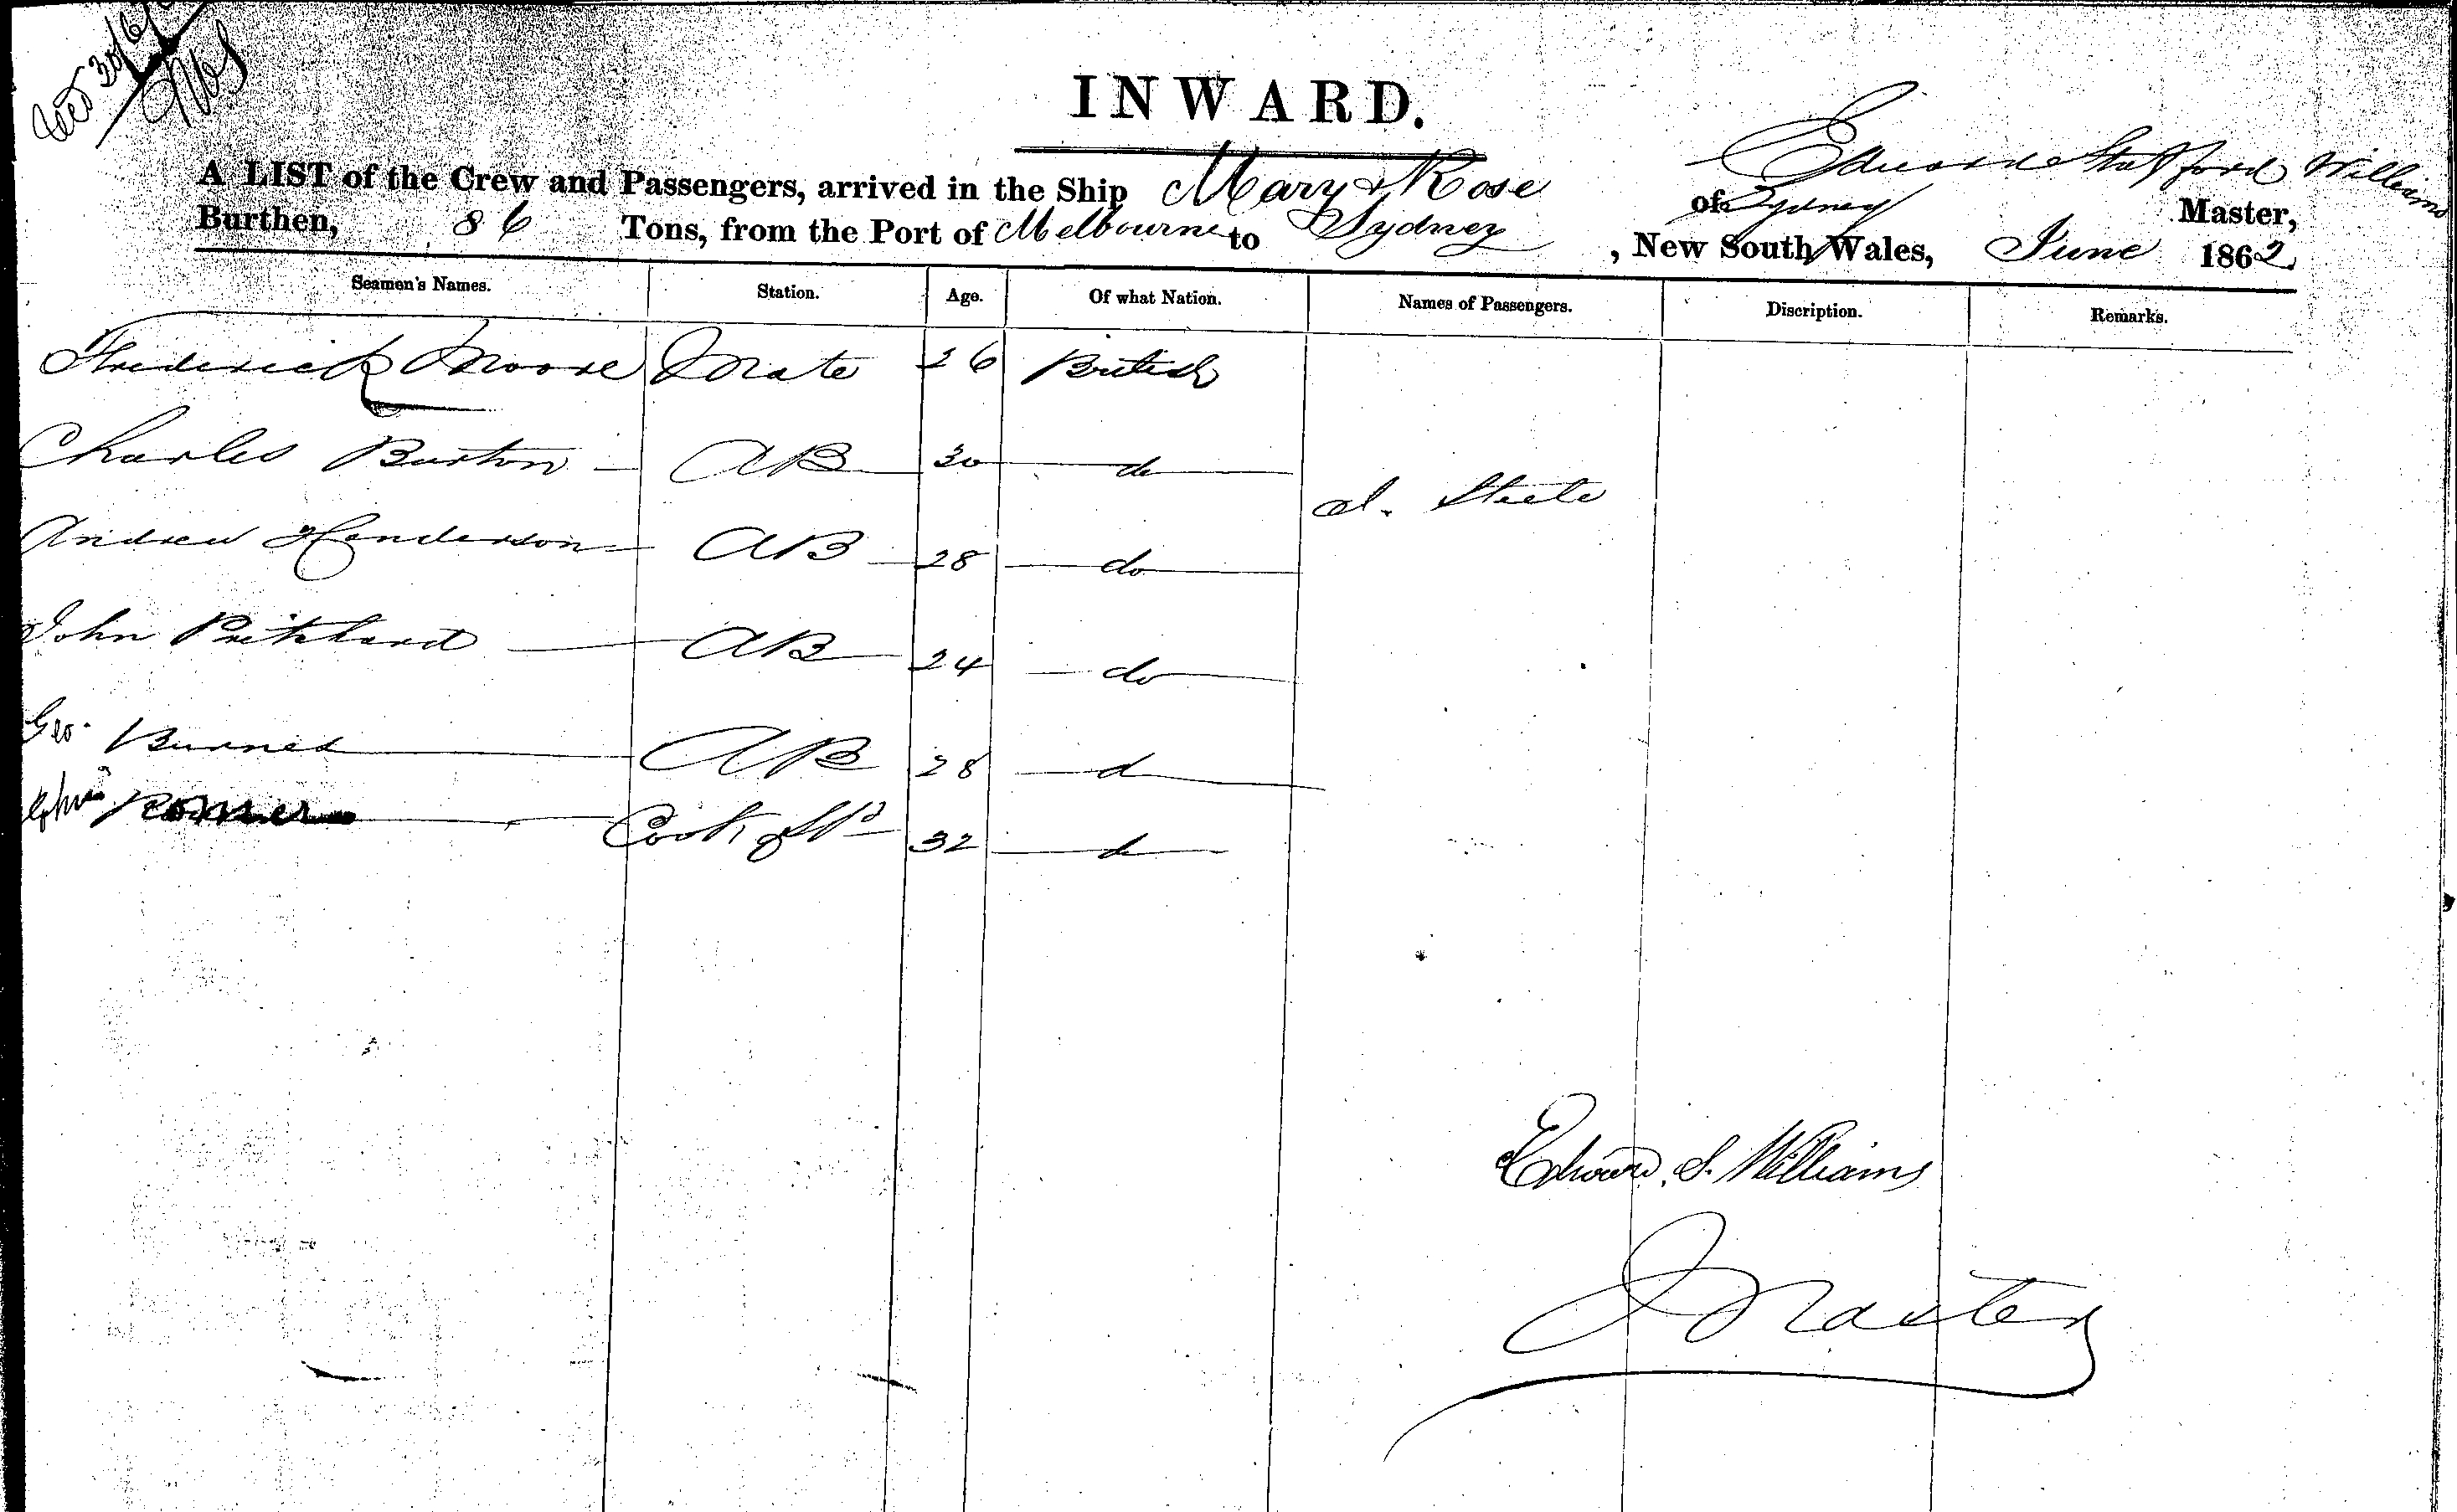 INWARD.
A LIST of the Crew and Passengers, arrived in the Ship Mary & Rose of Sydney Edward Stafford Williams Master,
Burthen, 86 Tons, from the Port of Melbourne to Sydney, New South Wales, June 1862
Seamen's Names. Station. Age. Of what Nation. Names of Passengers. Discription. Remarks.
Frederick Moore Mate 26 British
Charles Burton AB 30 do
A. Steele
Andrew Henderson AB 28 do
John Pritchard AB 24 do
Geo. Burnes AB 28 d
Romer Cook & 32 d
Edward S. Williams
Master